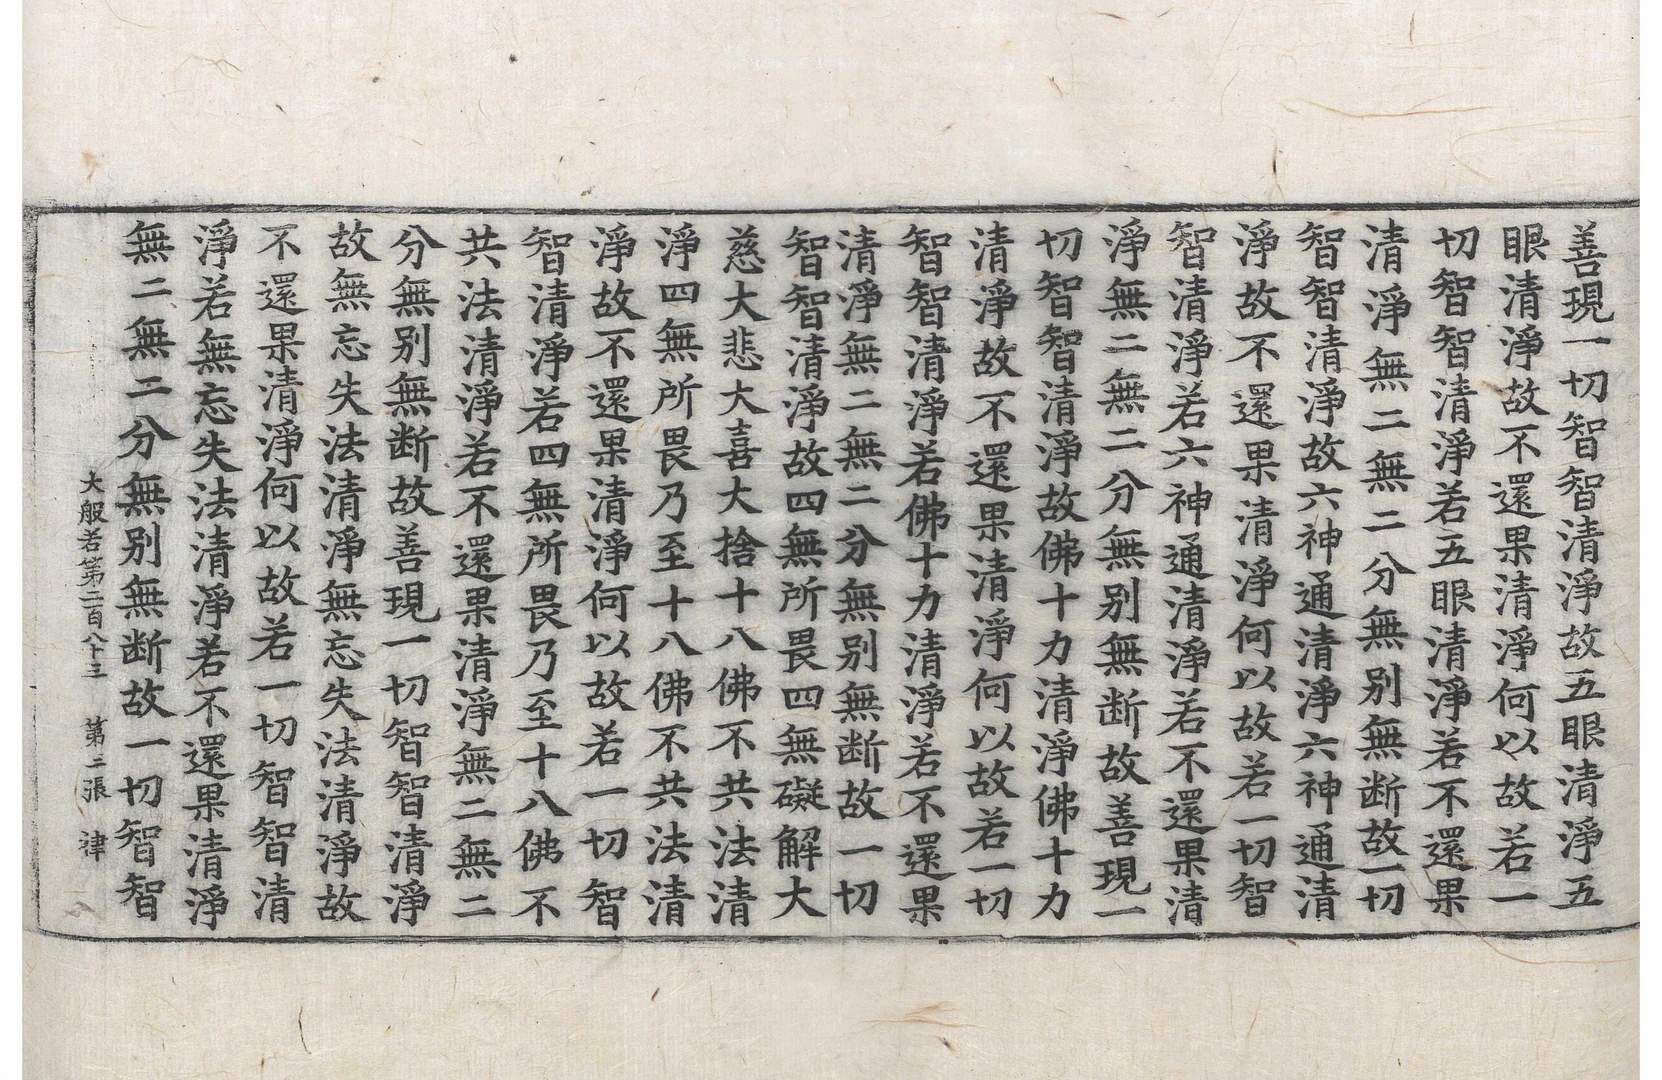 善現一切智智清淨故五眼清淨五
眼清淨故不還果清淨何以故若一
切智智清淨若五眼清淨若不還果
清淨無二無二分無别無断故一切
智智清淨故六神通清淨六神通清
淨故不還果清淨何以故若一切智
智清淨若六神通清淨若不還果清
淨無二無二分無别無断故善現一
切智智清淨故佛十力清淨佛十力
清淨故不還果清淨何以故若一切
智智清淨若佛十力清淨若不還果
清淨無二無二分無别無断故一切
智智清淨故四無所畏四無礙解大
慈大悲大喜大捨十八佛不共法清
淨四無所畏乃至十八佛不共法清
淨故不還果清淨何以故若一切智
智清淨若四無所畏乃至十八佛不
共法清淨若不還果清淨無二無二
分無别無断故善現一切智智清淨
故無忘失法清淨無忘失法清淨故
不還果清淨何以故若一切智智清
淨若無忘失法清淨若不還果清淨
無二無二分無别無断故一切智智
大般若第二百八十三 第二張 律